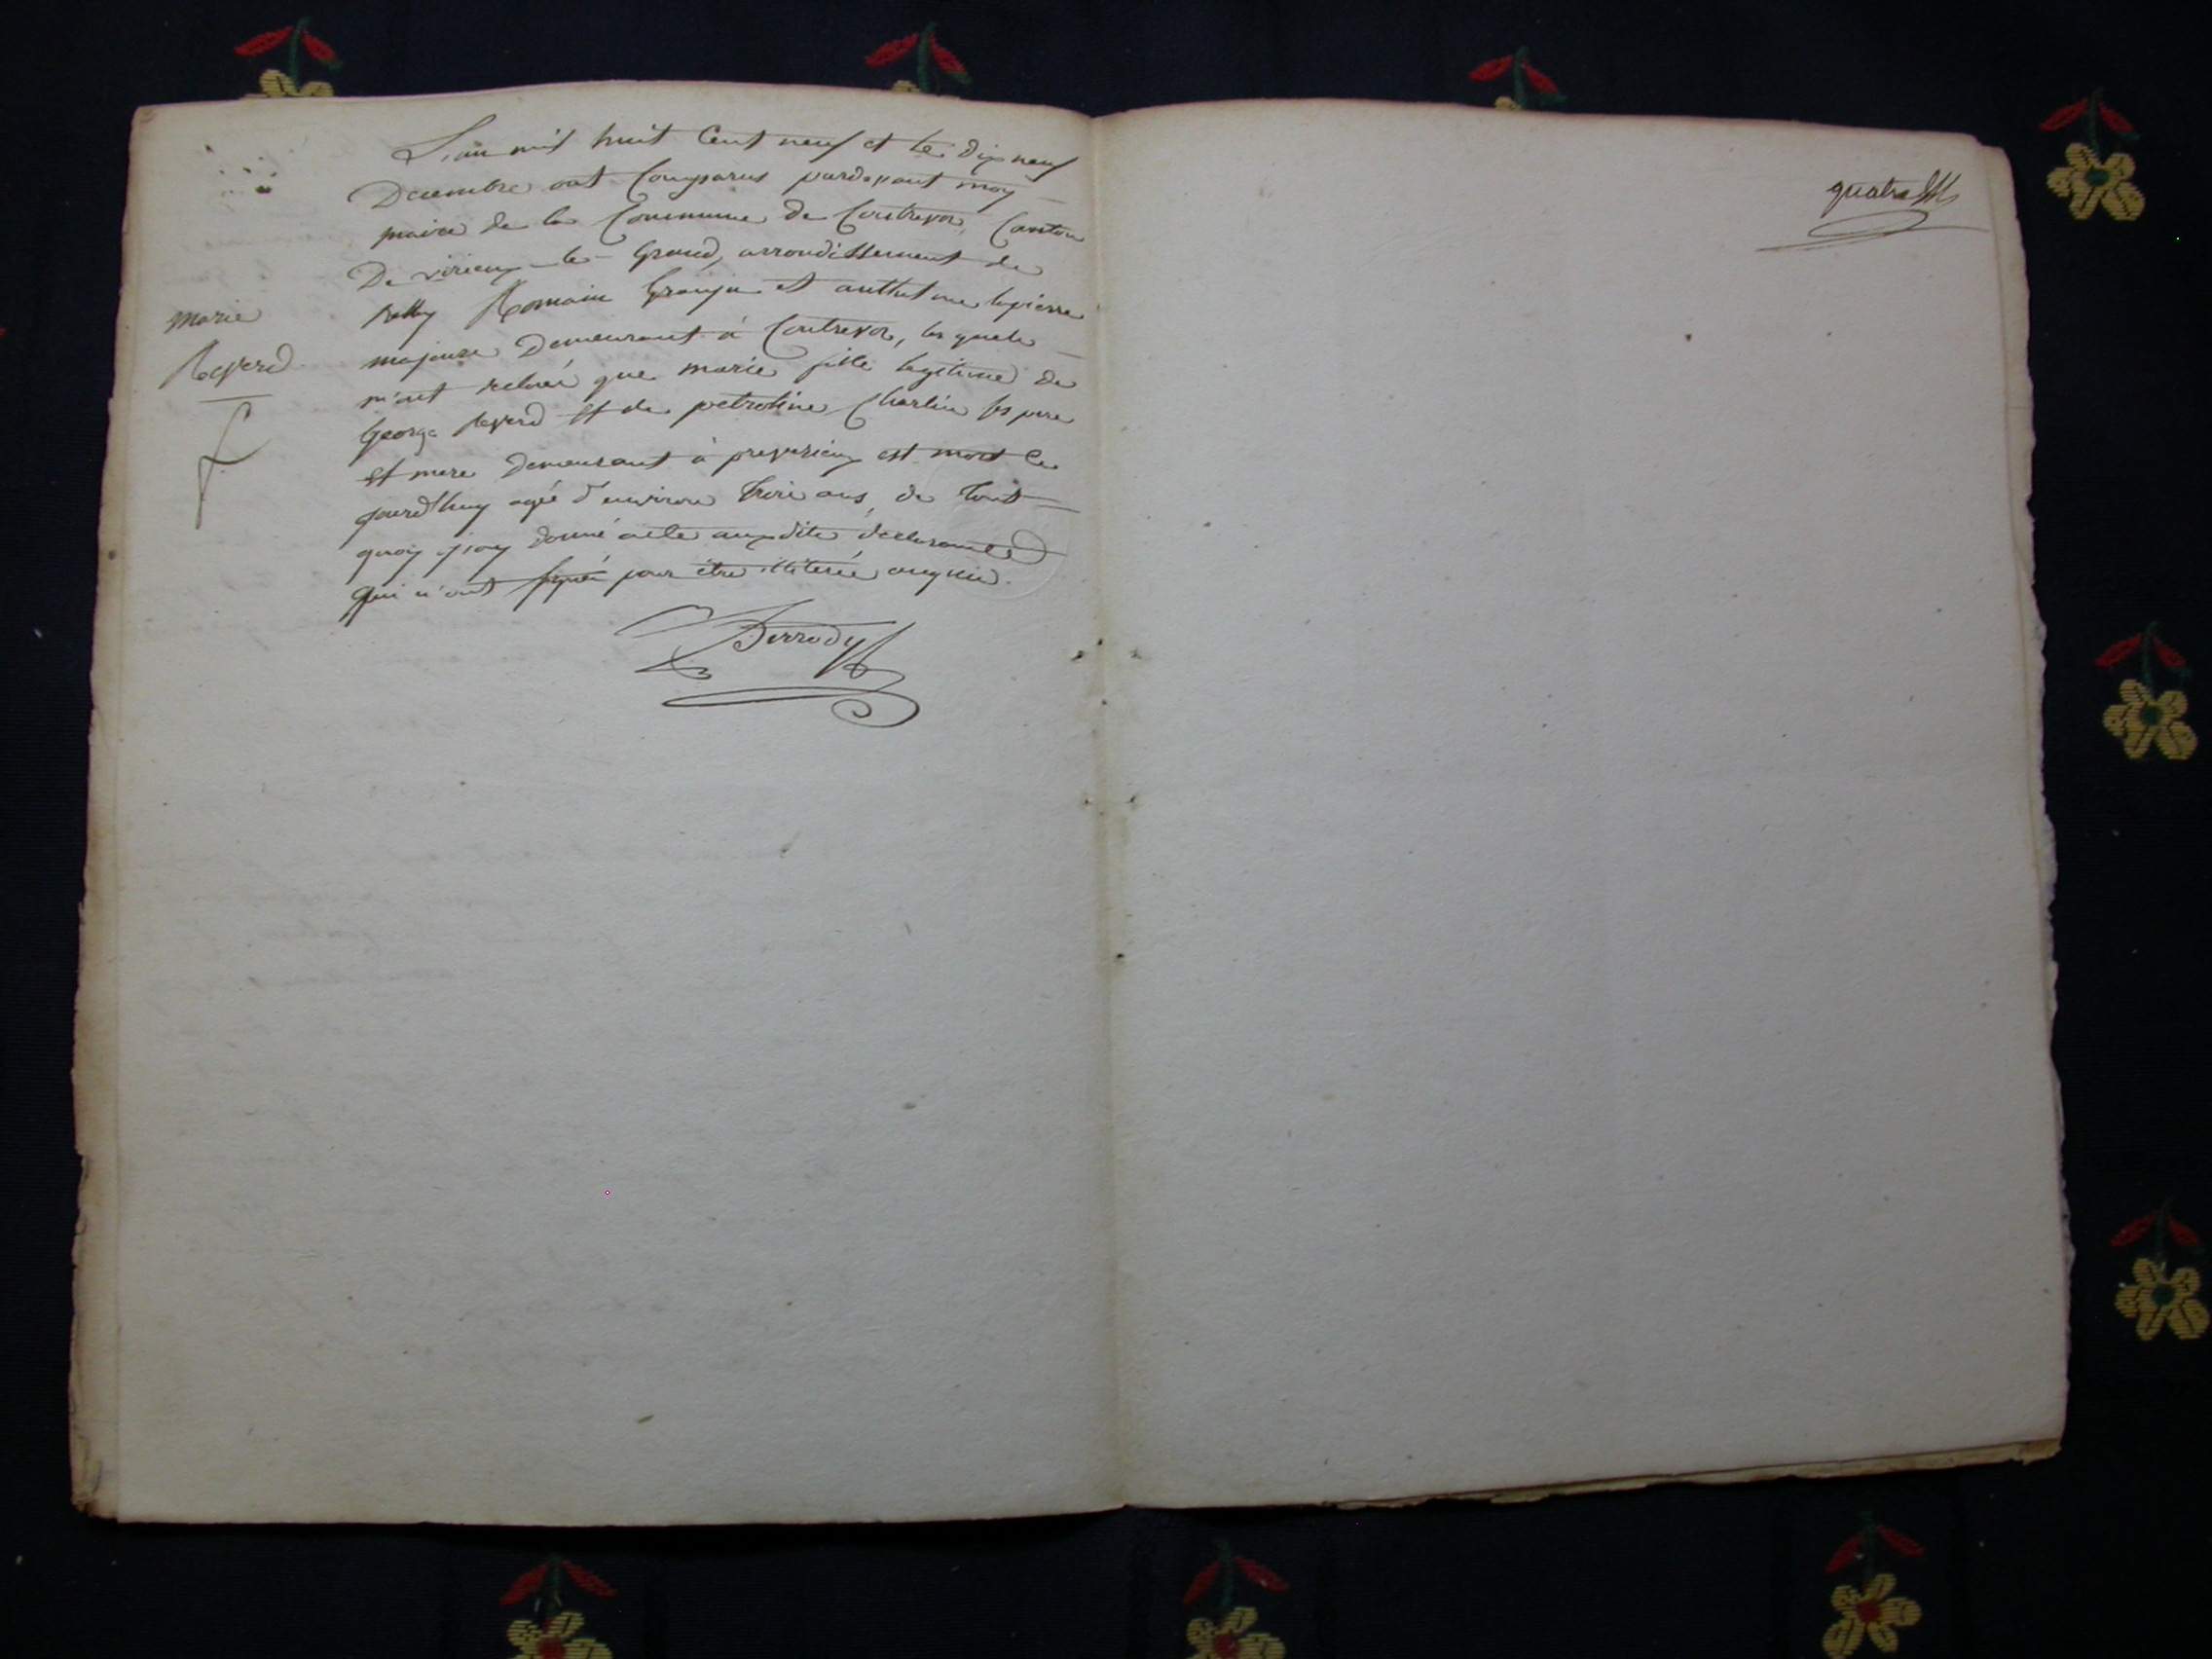 L'an mil huit Cent neuf et le dix neuf
Decembre ont Comparus pardevant moy
maire de la Commune de Contrevoz, Canton
De virieux-le-Grand, arrondissement de
Belley Romain Grinjon et anthelme lapierre
majeurs Demeurant à Contrevoz, les quels
m'ont relaté que marie fille legitime de
George Reverd et de petroline Charlin ses pere
et mere demeurant à preveyrieux est mort ce
jourd'huy agée d'environ trois ans, de tout
quoy j'ay donné acte auxdits declarants
qui n'ont signé pour être illiterés enquis.
Berrody
marie
Reverd
quatre